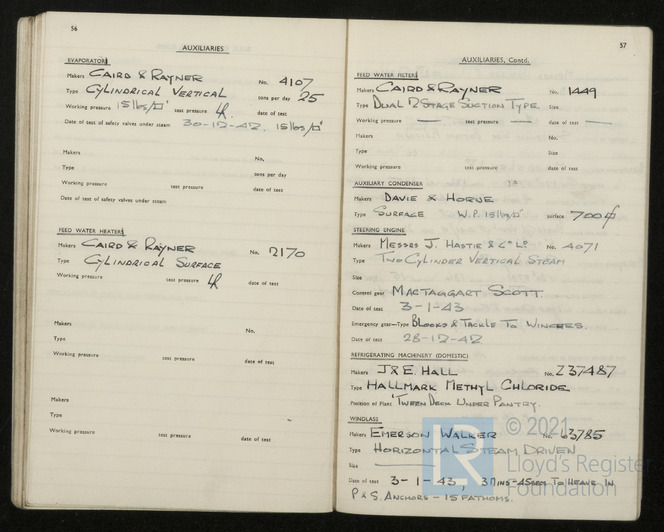 56
AUXILIARIES
EVAPORATORS
Makers CAIRD & RAYNER No. 4107
Type CYLINDRICAL VERTICAL tons per day 25
Working pressure 15 lbs/□" test pressure date of test
Date of test of safety valves under steam 30-12-42. 15 lbs/□"
Makers No.
Type tons per day
Working pressure test pressure date of test
Date of test of safety valves under steam
FEED WATER HEATERS
Makers CAIRD & RAYNER No. 2170
Type CYLINDRICAL SURFACE
Working pressure test pressure date of test
Makers No.
Type
Working pressure test pressure date of test
Makers
Type
Working pressure test pressure date of test
57
AUXILIARIES, Contd.
FEED WATER FILTERS
Makers CAIRD & RAYNER No. 1449
Type DUAL 2 STAGE SUCTION TYPE Size
Working pressure — test pressure — date of test —
Makers No.
Type Size
Working pressure test pressure date of test
AUXILIARY CONDENSER
Makers DAVIE & HORNE
Type SURFACE W.P. 15 lbs/□" surface 700
STEERING ENGINE
Makers MESSRS J. HASTIE & Co Ld No. 4071
Type TWO CYLINDER VERTICAL STEAM
Size
Control gear MACTAGGART SCOTT.
Date of test 3-1-43
Emergency gear—Type BLOCKS & TACKLE TO WINCHES.
Date of test 28-12-42
REFRIGERATING MACHINERY (DOMESTIC)
Makers J & E. HALL No. Z37487
Type HALLMARK METHYL CHLORIDE
Position of Plant 'TWEEN DECK UNDER PANTRY.
WINDLASS
Makers EMERSON WALKER No. 63785
Type HORIZONTAL STEAM DRIVEN
Size —
Date of test 3-1-43, 3 MINS-45SECS TO HEAVE IN
P & S. ANCHORS - 15 FATHOMS.
© 2021
LR Lloyd's Register
Foundation